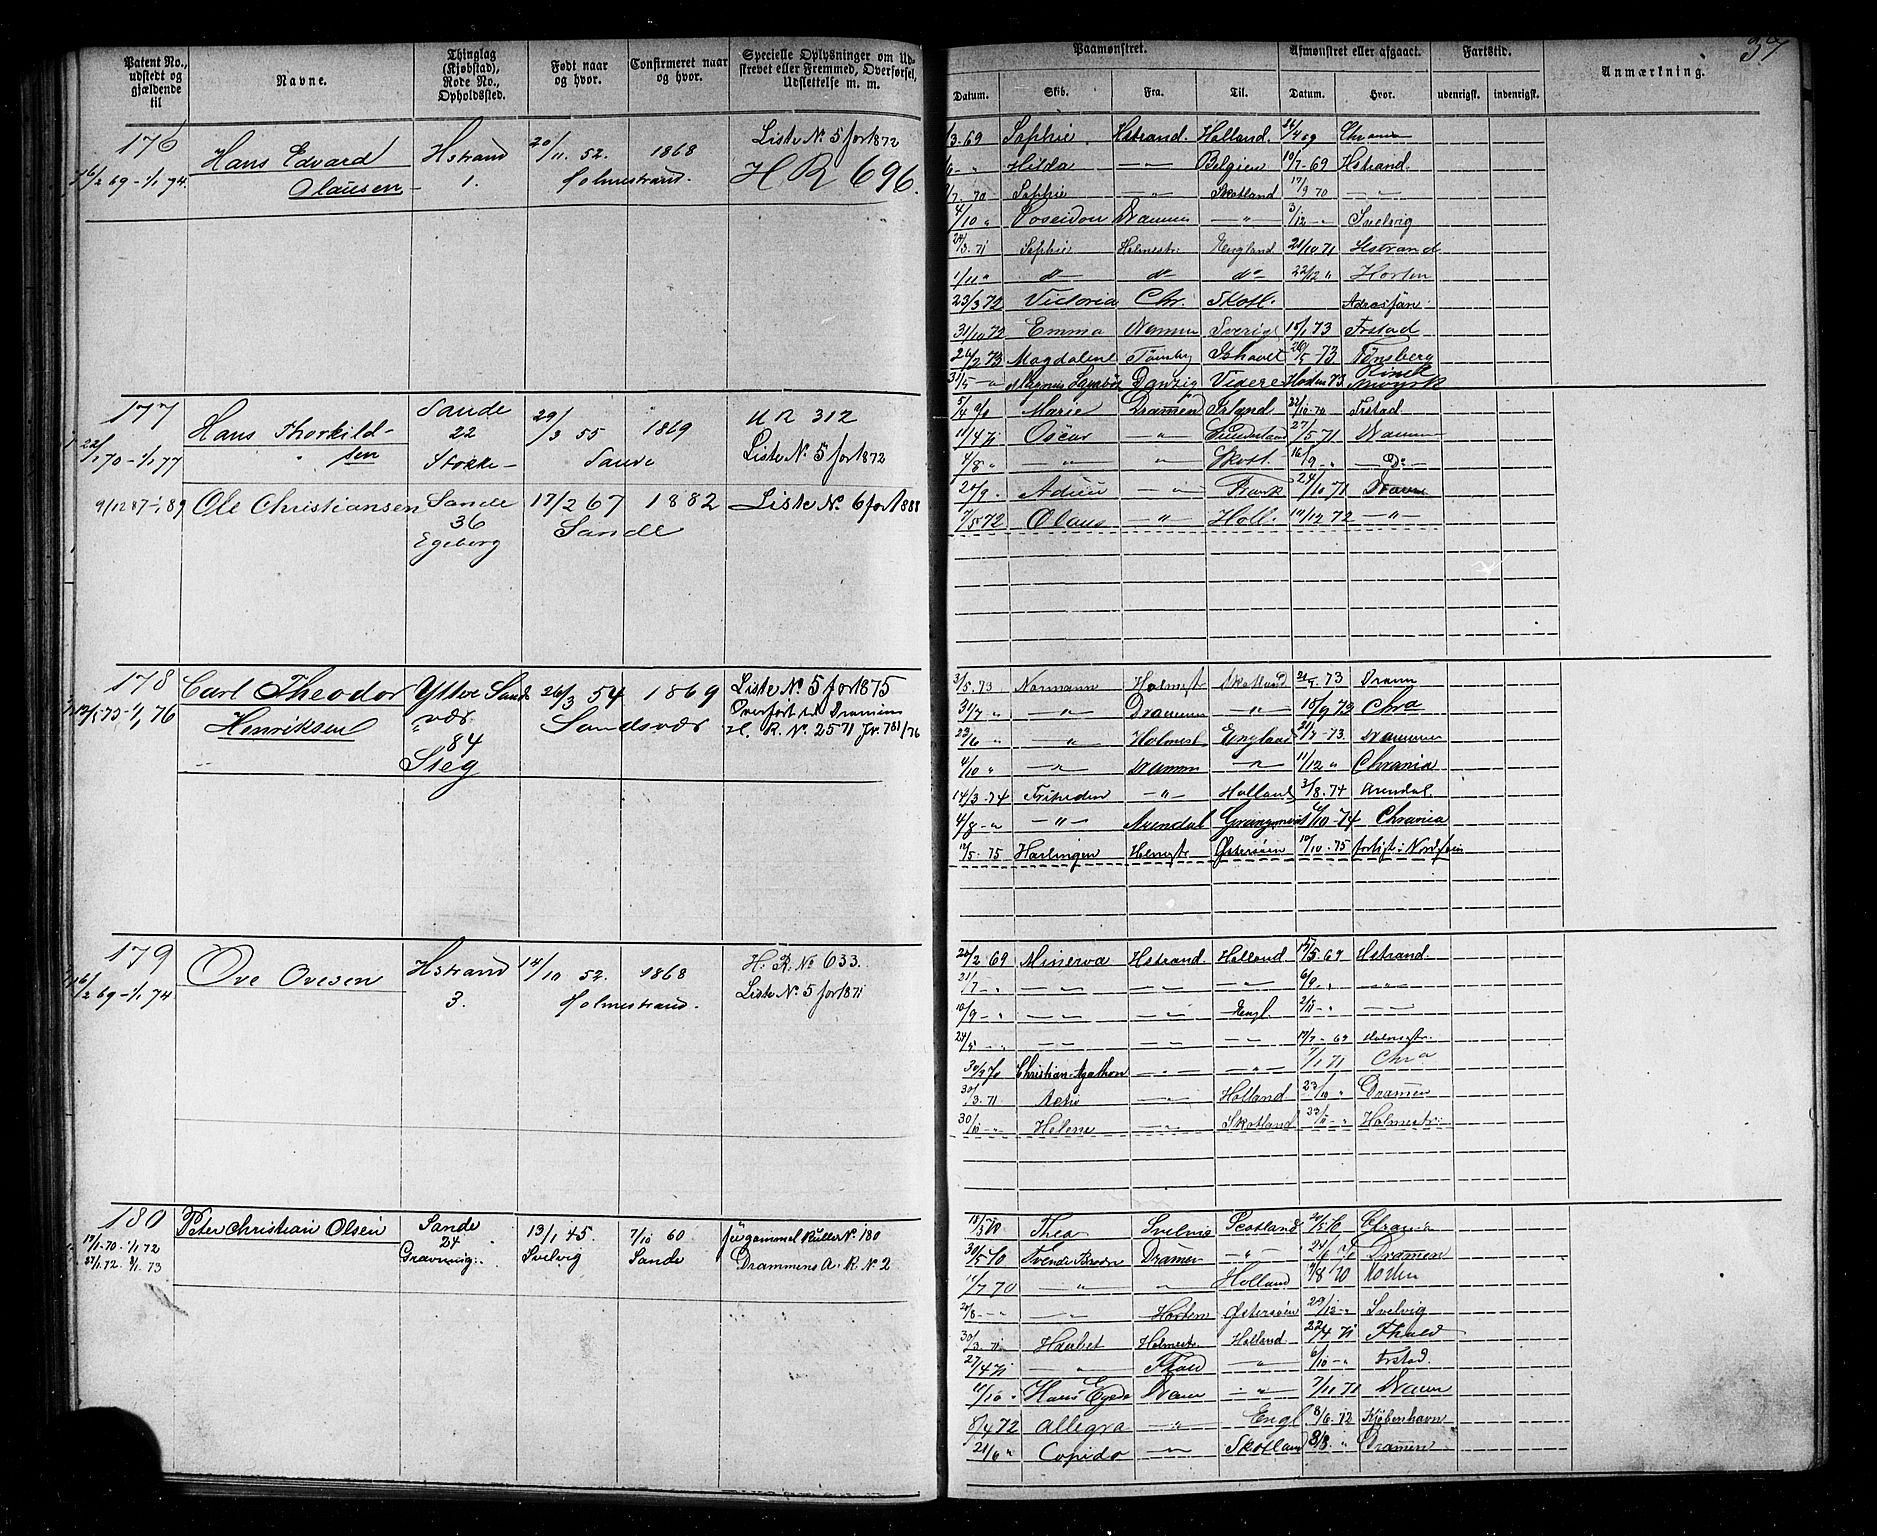 Patent No., udstedt og gjældende til
Navne.
Thinglag (Kjøbstad), Rode No., Opholdssted.
Født naar og hvor.
Confirmeret naar og hvor.
Specielle Oplysninger om Udskrevet eller Fremmed, Overførsel, Udslettelse m. m.
Paamønstret.
Afmønstret eller afgaaet.
Fartstid.
Anmærkning.
37
Datum. Skib. Fra. Til. Datum. Hvor. udenrigsk. indenrigsk.
176
16/2 69 - 1/1 74.
Hans Edvard
Clausen
Hstrand
1.
20/11. 52.
Holmestrand.
1868
Liste No. 5 for 1872
H R 696.
/3-69 Sophie Hstrand. Holland. 26/4 69 Chrania
Hilda — " — Belgien 19/7-69 Hstrand.
/7. 70 Sophie — " — Skotland 17/9 70 — " —
4/10 " Poseidon Dramen — " — 3/12 - Svelvig
24/3. 71 Sophie Holmestr. England 21/10 71 Hstrand
1/11 " do do do 22/12 " Horten
23/3 72 Victoria Chr. Skotl.
31/10 72 Emma Dramen Sverige 15/1 73 Frstad
26/2 73 Magdalene Tønsbg Ishavet 26/5 73 Tønsberg
31/5 - " Danzig Videre Høsten 73
177
22/1 70 - 1/1 77
Hans Thorkild-
sen
Sande
22
Stokke
29/3 55
Sande
1869
U R 312
Liste No. 5 for 1872
5/4 70 Marie Dramen Irland. 22/10 70 Frstad.
11/4 71 Oscar — " — 27/5 71 Dramen
4/8 " — " — — " — Skotl. 16/9 - " — Do
20/9 - Adieu — " — 24/10 71 Dramen
7/5 72 Olaus — " — Holl. 10/12 72 — " —
9/12 87 - 1/1 89
Ole Christiansen
Sande
36
Egeberg
17/2 67
Sande
1882
Liste No. 6 for 1888
178
12/5 75 - 1/1 76
Carl Theodor
Henriksen
Yttre Sands
vær
84
Steg
26/3 54
Sandsvær
1869
Liste No. 5 for 1875
Overført til Dramens
H. R. No. 2571 Jr. 781/76
3/5. 73 Normann Holmestr Skotland 73 Dramn
31/7 " — " — Drammen — " — 15/9 73 Chra
23/6 " — " — Holmest England 73. Drammen
4/10 " — " — Dramm — " — 11/12 " Chrania
14/3. 74 Friheden — " — Holland 3/8. 74 Arendal.
4/8 - " — " — Arendal 6/10 - 74 Chrania
12/5. 75 Harlingen Holmestr Østersøen 10/10. 75 forlist i Nordsøen
179
16/2 69 - 1/1 74
Ove Ovesen
Hstrand
3.
14/10 52.
Holmestrand.
1868
H. R. No 633.
Liste No. 5 for 1871
26/2 69 Minerva Hstrand Holland 15/5. 69 Hstrand.
21/7 - " — " — — " — — " — 6/9. " — " —
10/9 - " — " — — " — Engl. 2/11 - " — " —
24/5 — " — — " — — " — 17/7 - 69 Holmestr.
30/9 70 Christian Agathon — " — — " — 7/1 71 Chra
30/3. 71 — " — Holland 23/10 " Dramen
30/10 - " Helene — " — Skotland 22/11 - " Holmestr:
180
19/1. 70. 1/1 72
27/1. 72. 1/1. 73
Peter Christian Olsen
Sande
24
Gravning:.
13/1 45.
Svelvig
7/10 60
Sande
før gammel Rulle No. 180
Drammens A. R. No 2
18/3 70 Thea Svelvig Scotland 20/5 70 Chrania
30/5 70 Tvende Brødre Dramen — " — 21/6 70 Dramen
11/7 70 — " — — " — Holland 9/8 70 Horten
20/8 - " — " — Horten Østersøen 29/12 - " Svelvig
30/3. 71 Haabet Holmestr Holland 22/4 71 Fhald
27/4 71 — " — Fhald — " — 6/10 - " Frstad.
11/10 " Hans Egede Dramn — " — 7/11 71 Dramn
8/4 72 Allegra — " — Engl 8/6. 72 Kjøbenhavn
21/6 " Copido — " — Skotland 3/8. " Dramen